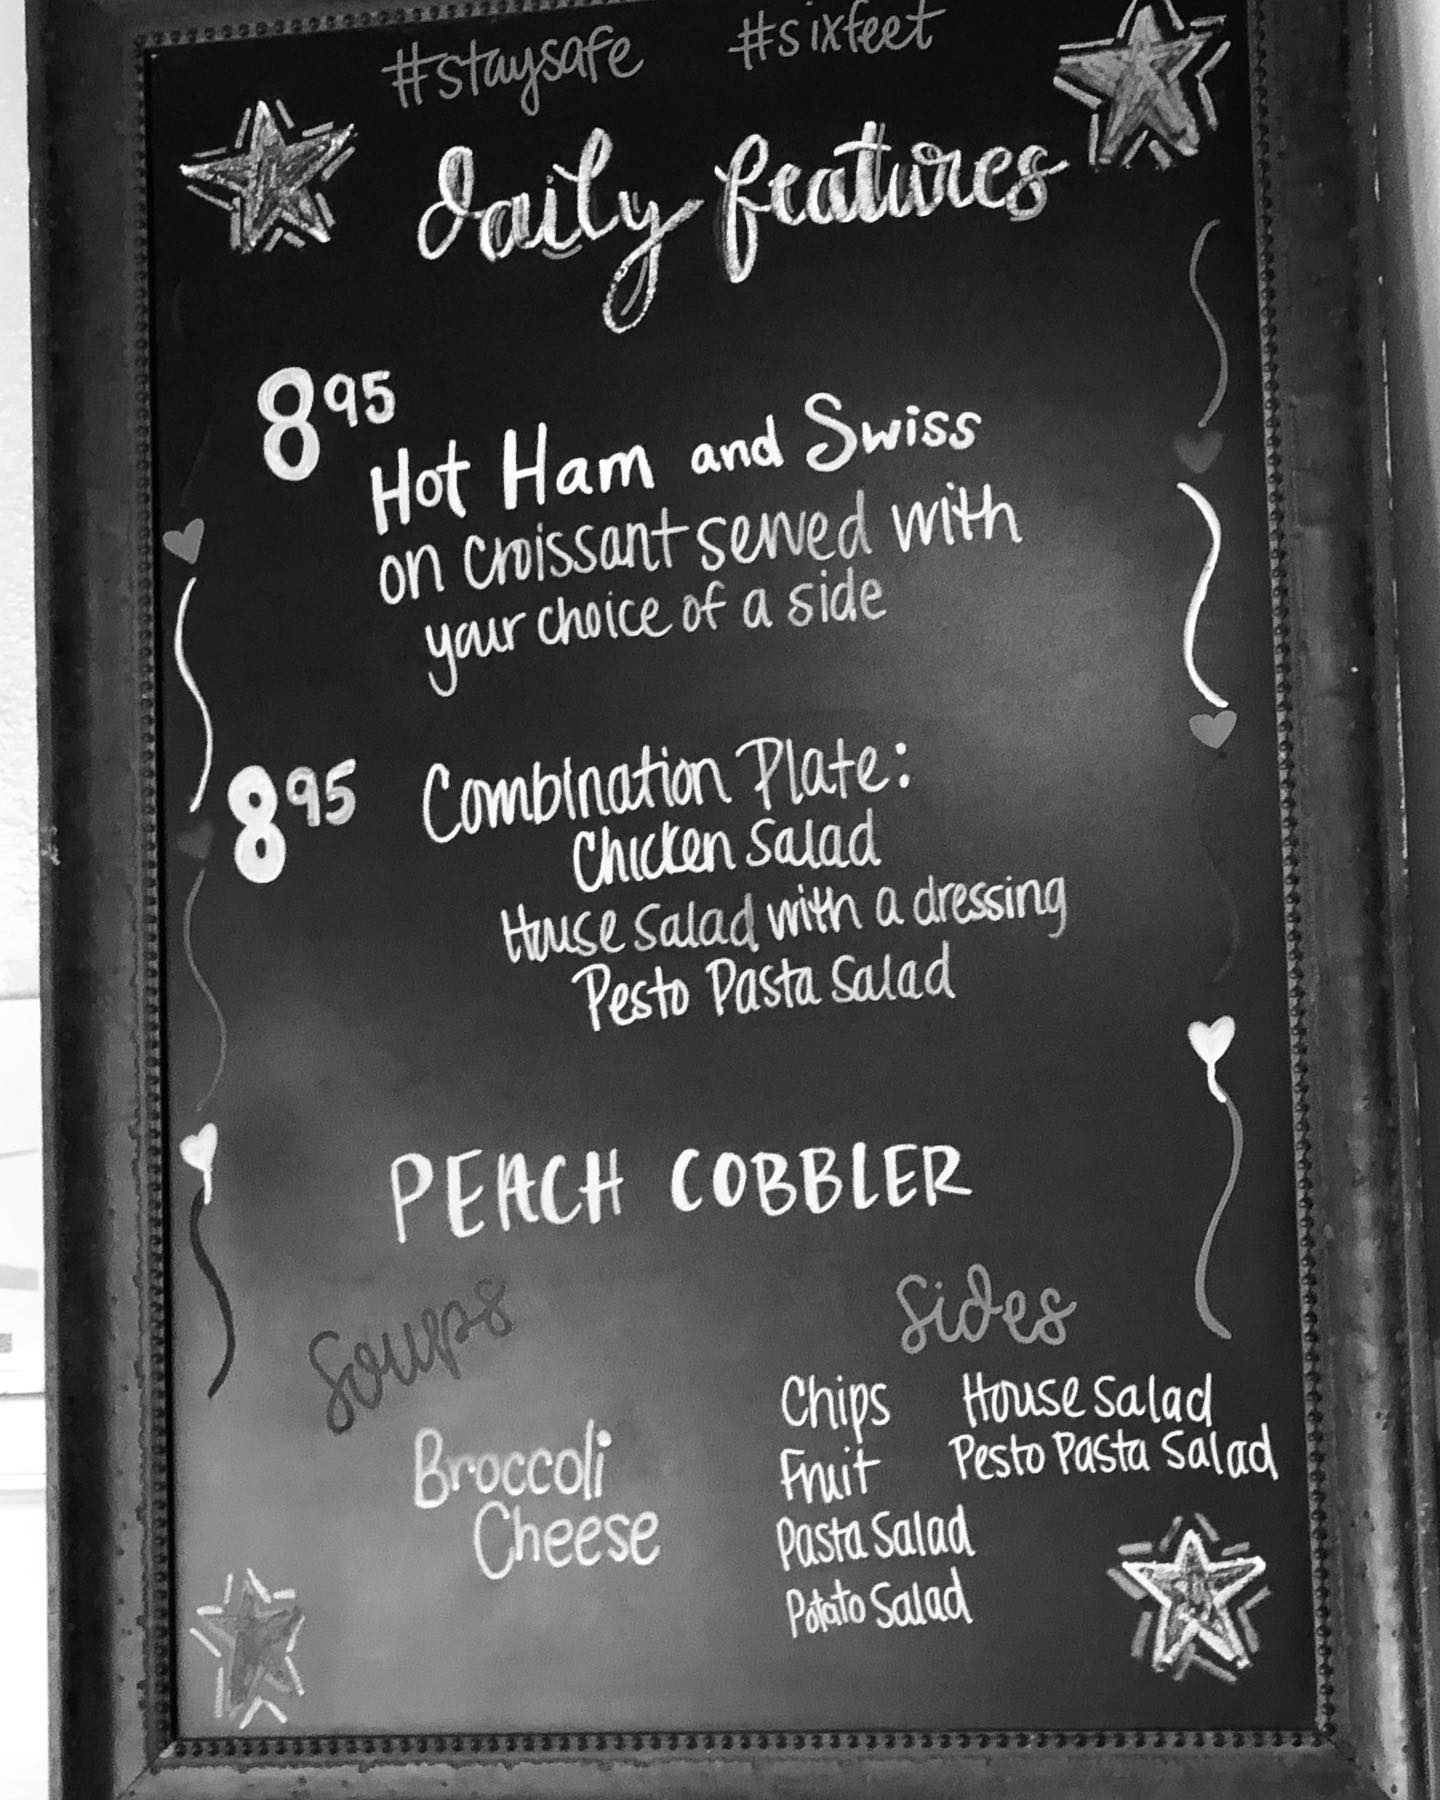 #staysafe #sixfeet
daily features
8 95
Hot Ham and Swiss
on croissant served with
your choice of a side
8 95 Combination Plate:
Chicken Salad
House Salad with a dressing
Pesto Pasta Salad
PEACH COBBLER
Soups
Broccoli
Cheese
Sides
Chips House Salad
Fruit Pesto Pasta Salad
Pasta Salad
Potato Salad